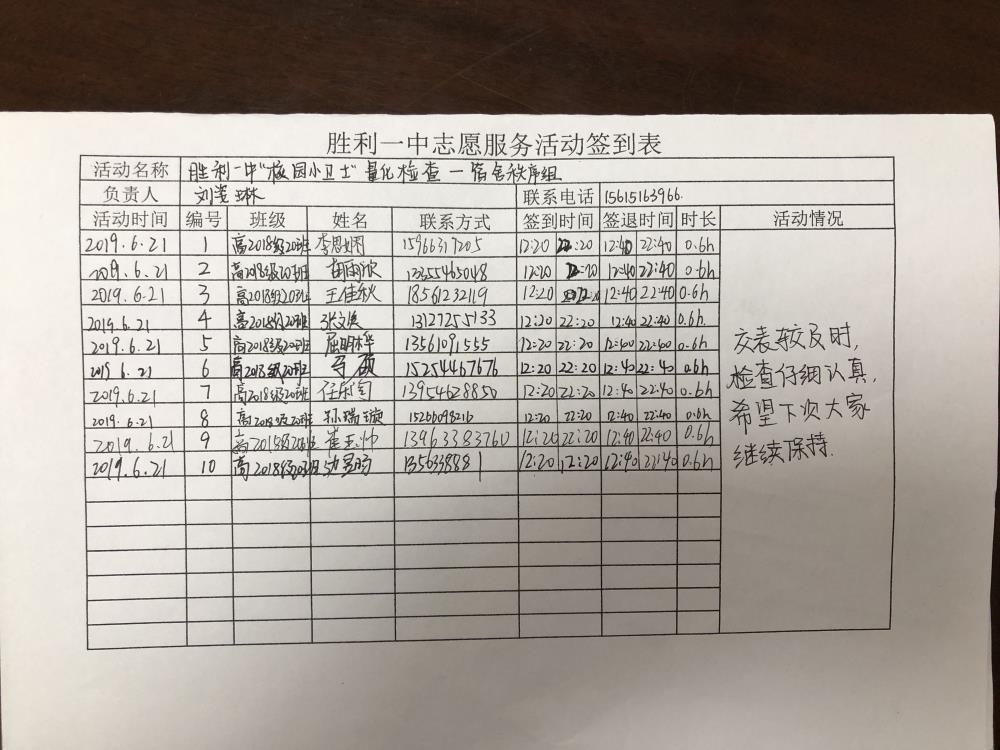 胜利一中志愿服务活动签到表
活动名称 胜利一中"校园小卫士"量化检查—宿舍秩序组
负责人 刘 琳 联系电话 15615163966.
活动时间 编号 班级 姓名 联系方式 签到时间 签退时间 时长 活动情况
2019.6.21 1 高2018级20班 李思娴 15966317205 12:20 22:20 12:40 22:40 0.6h
2019.6.21 2 高2018级20班 胡雨欣 13355465048 12:20 22:20 12:40 22:40 0.6h
2019.6.21 3 高2018级20班 王佳秋 18561232119 12:20 22:20 12:40 22:40 0.6h
2019.6.21 4 高2018级20班 张文 13127255133 12:20 22:20 12:40 22:40 0.6h.
2019.6.21 5 高2018级20班 屈明桦 13561091555 12:20 22:20 12:40 22:40 0.6h
2019.6.21 6 高2018级20班 硕 15254467676 12:20 22:20 12:40 22:40 0.6h
2019.6.21 7 高2018级20班 任 13954628850 12:20 22:20 12:40 22:40 0.6h
2019.6.21 8 高2018级20班 孙瑞璇 15266098216 12:20 22:20 12:40 22:40 0.6h
2019.6.21 9 高2018级20班 崔玉帅 13963383760 12:20 22:20 12:40 22:40 0.6h
2019.6.21 10 高2018级20班 12:20 12:20 12:40 22:40 0.6h
交表较及时,
检查仔细认真,
希望下次大家
继续保持.